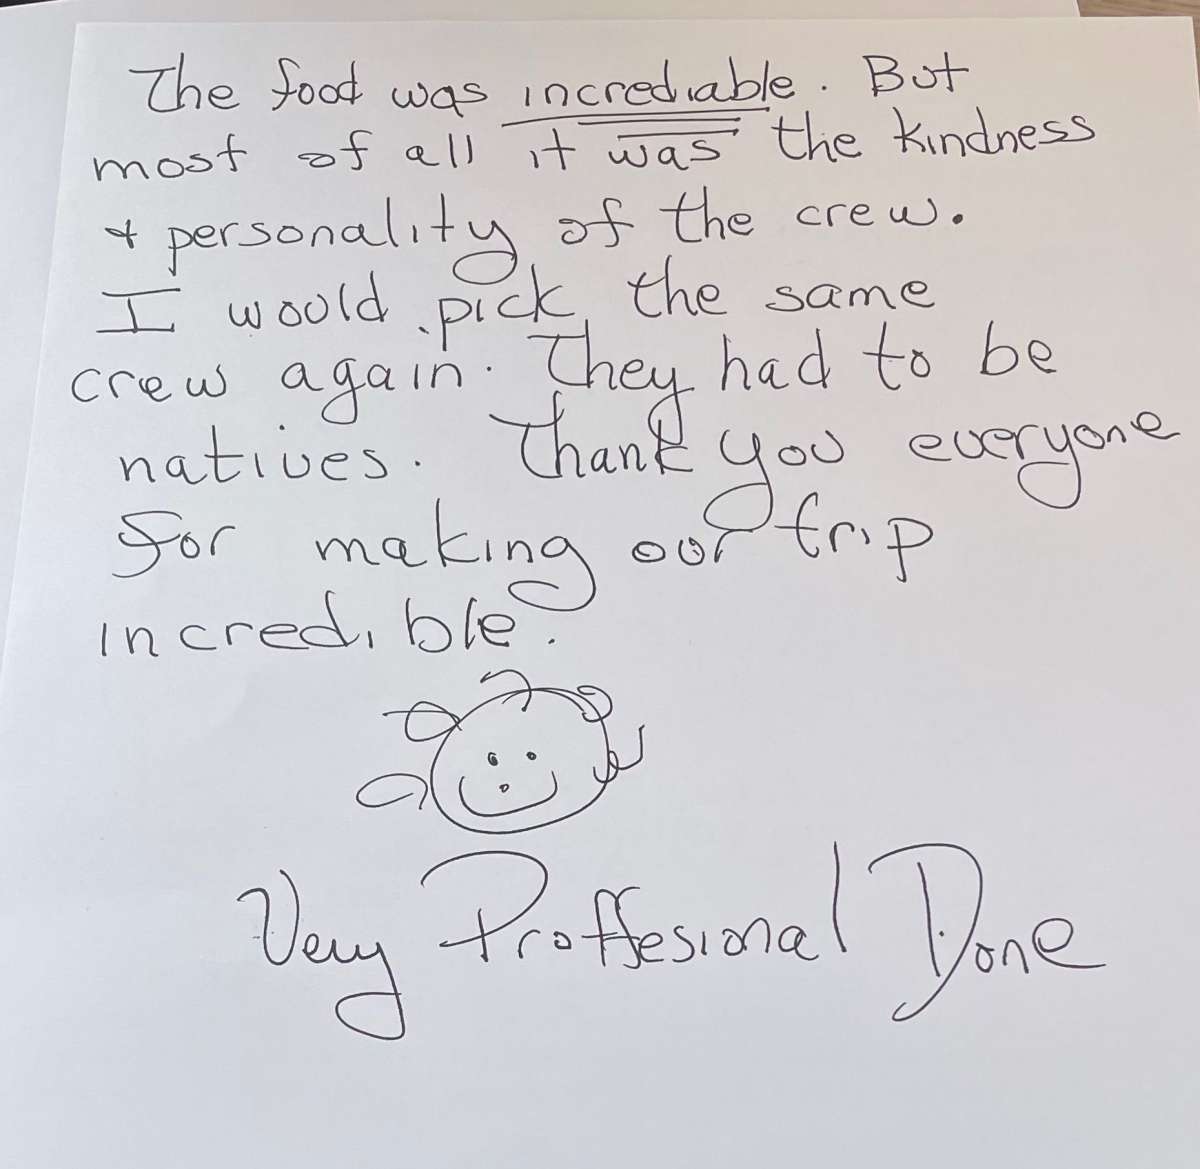 The food was incrediable. But
most of all it was the kindness
& personality of the crew.
I would pick the same
crew again. They had to be
natives. Thank you everyone
for making our trip
incredible.
Very Proffesional Done